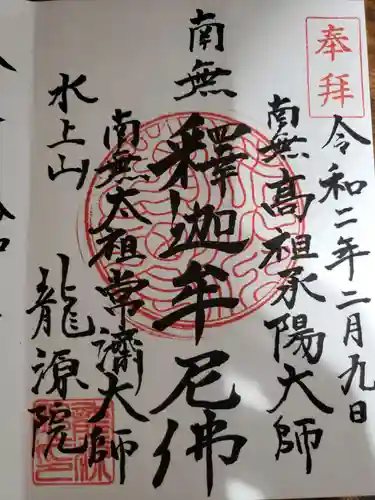 奉拝
令和二年二月九日
南無高祖承陽大師
南無釋迦牟尼佛
南無太祖常濟大師
水上山
龍源院